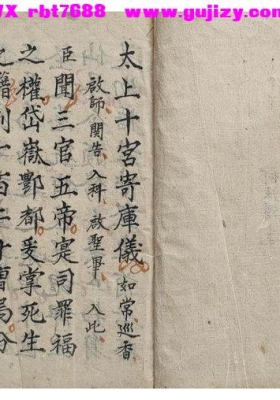 VX rbt7688 www.gujizy.com
太上十宮寄庫儀 如常巡香
啟師關告入科啟聖畢 入此
臣聞三官五帝寔司罪福
之權岱嶽酆都爰掌死生
之籍列一百二十曹局分